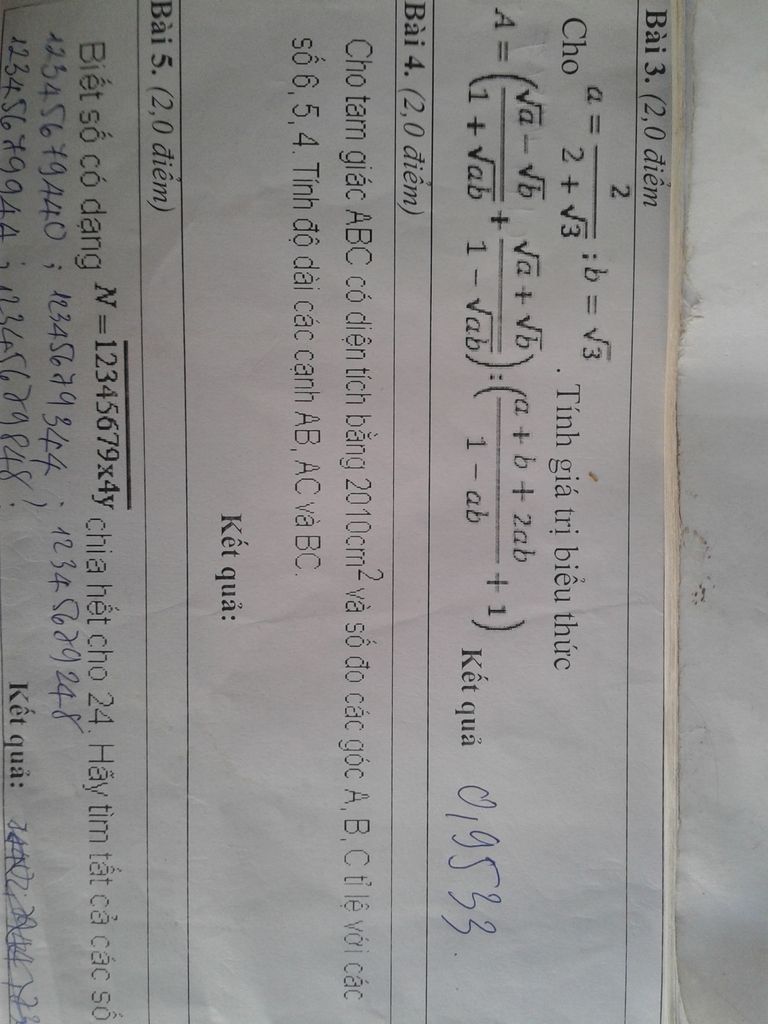 Bài 3. (2,0 điểm
Cho a = 2/(2 + √3) ; b = √3 . Tính giá trị biểu thức
A = ((√a − √b)/(1 + √ab) + (√a + √b)/(1 − √ab)) : ((a + b + 2ab)/(1 − ab) + 1) Kết quả 0,9533.
Bài 4. (2,0 điểm)
Cho tam giác ABC có diện tích bằng 2010cm² và số đo các góc A, B, C tỉ lệ với các
số 6, 5, 4. Tính độ dài các cạnh AB, AC và BC.
Kết quả:
Bài 5. (2,0 điểm)
Biết số có dạng N = 12345679x4y chia hết cho 24. Hãy tìm tất cả các số
12345679440 ; 12345679344 ; 12345679248
12345679944 ; 12345679848 ;
Kết quả: